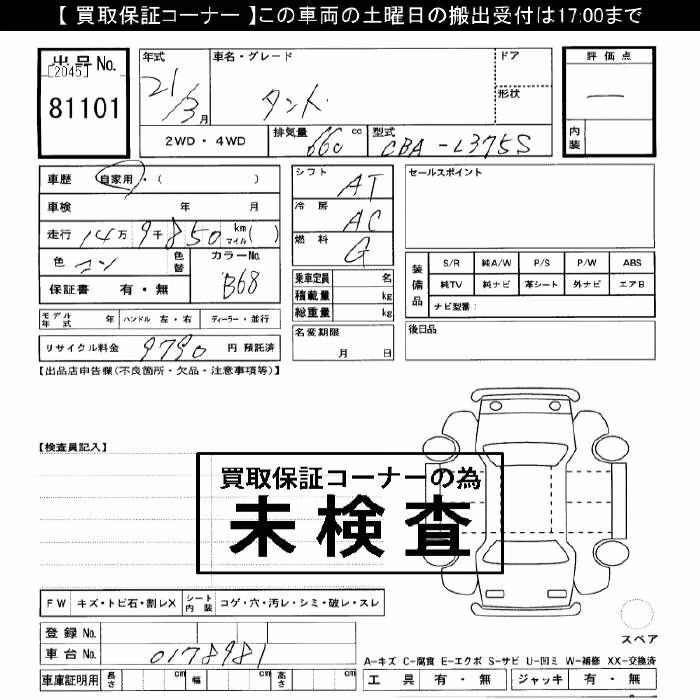 【 買取保証コーナー 】この車両の土曜日の搬出受付は17:00まで
出品No.
[2045]
81101
年式
21/3月
車名・グレード
タント
ドア
形状
評価点
—
内装
2WD・4WD
排気量 660 cc
型式 CBA-L375S
車歴 自家用・( )
車検 年 月
走行 14万9千850 km マイル( )
色 コン 色替
カラーNo. B68
保証書 有・無
シフト AT
冷房 AC
燃料 G
乗車定員 名
積載量 kg
総重量 kg
セールスポイント
装備品
S/R 純A/W P/S P/W ABS
純TV 純ナビ 革シート 外ナビ エアB
ナビ型番:
モデル年式 年 ハンドル 左・右 ディーラー・並行
リサイクル料金 9790 円 預託済
名変期限
月 日
後日品
【出品店申告欄(不良箇所・欠品・注意事項等)】
【検査員記入】
買取保証コーナーの為
未検査
FW キズ・トビ石・割レX シート内装 コゲ・穴・汚レ・シミ・破レ・スレ
登録No.
車台No. 0178981
車庫証明用 長さ cm 幅 cm 高さ cm
スペア
A-キズ C-腐食 E-エクボ S-サビ U-凹ミ W-補修 XX-交換済
工具 有・無 ジャッキ 有・無